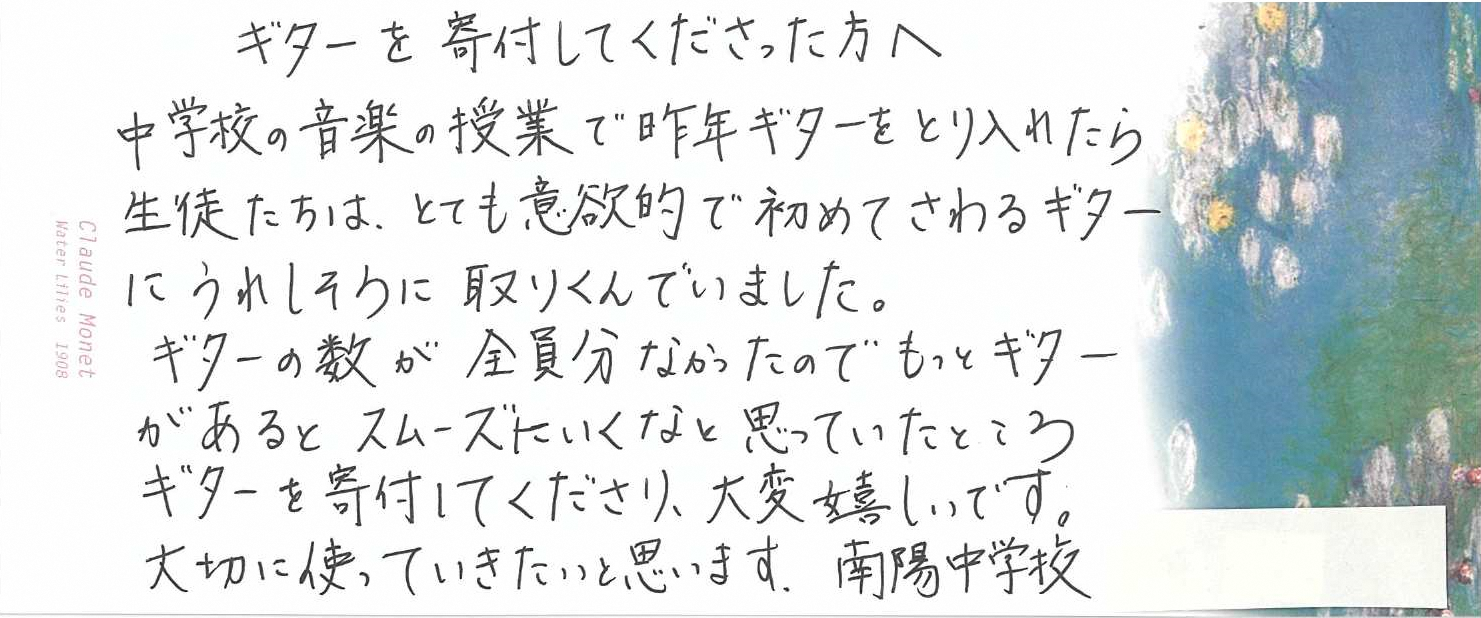 ギターを寄付してくださった方へ
中学校の音楽の授業で昨年ギターをとり入れたら
生徒たちは、とても意欲的で初めてさわるギター
にうれしそうに取りくんでいました。
ギターの数が全員分なかったのでもっとギター
があるとスムーズにいくなと思っていたところ
ギターを寄付してくださり、大変嬉しいです。
大切に使っていきたいと思います. 南陽中学校
Claude Monet
Water Lilies 1908